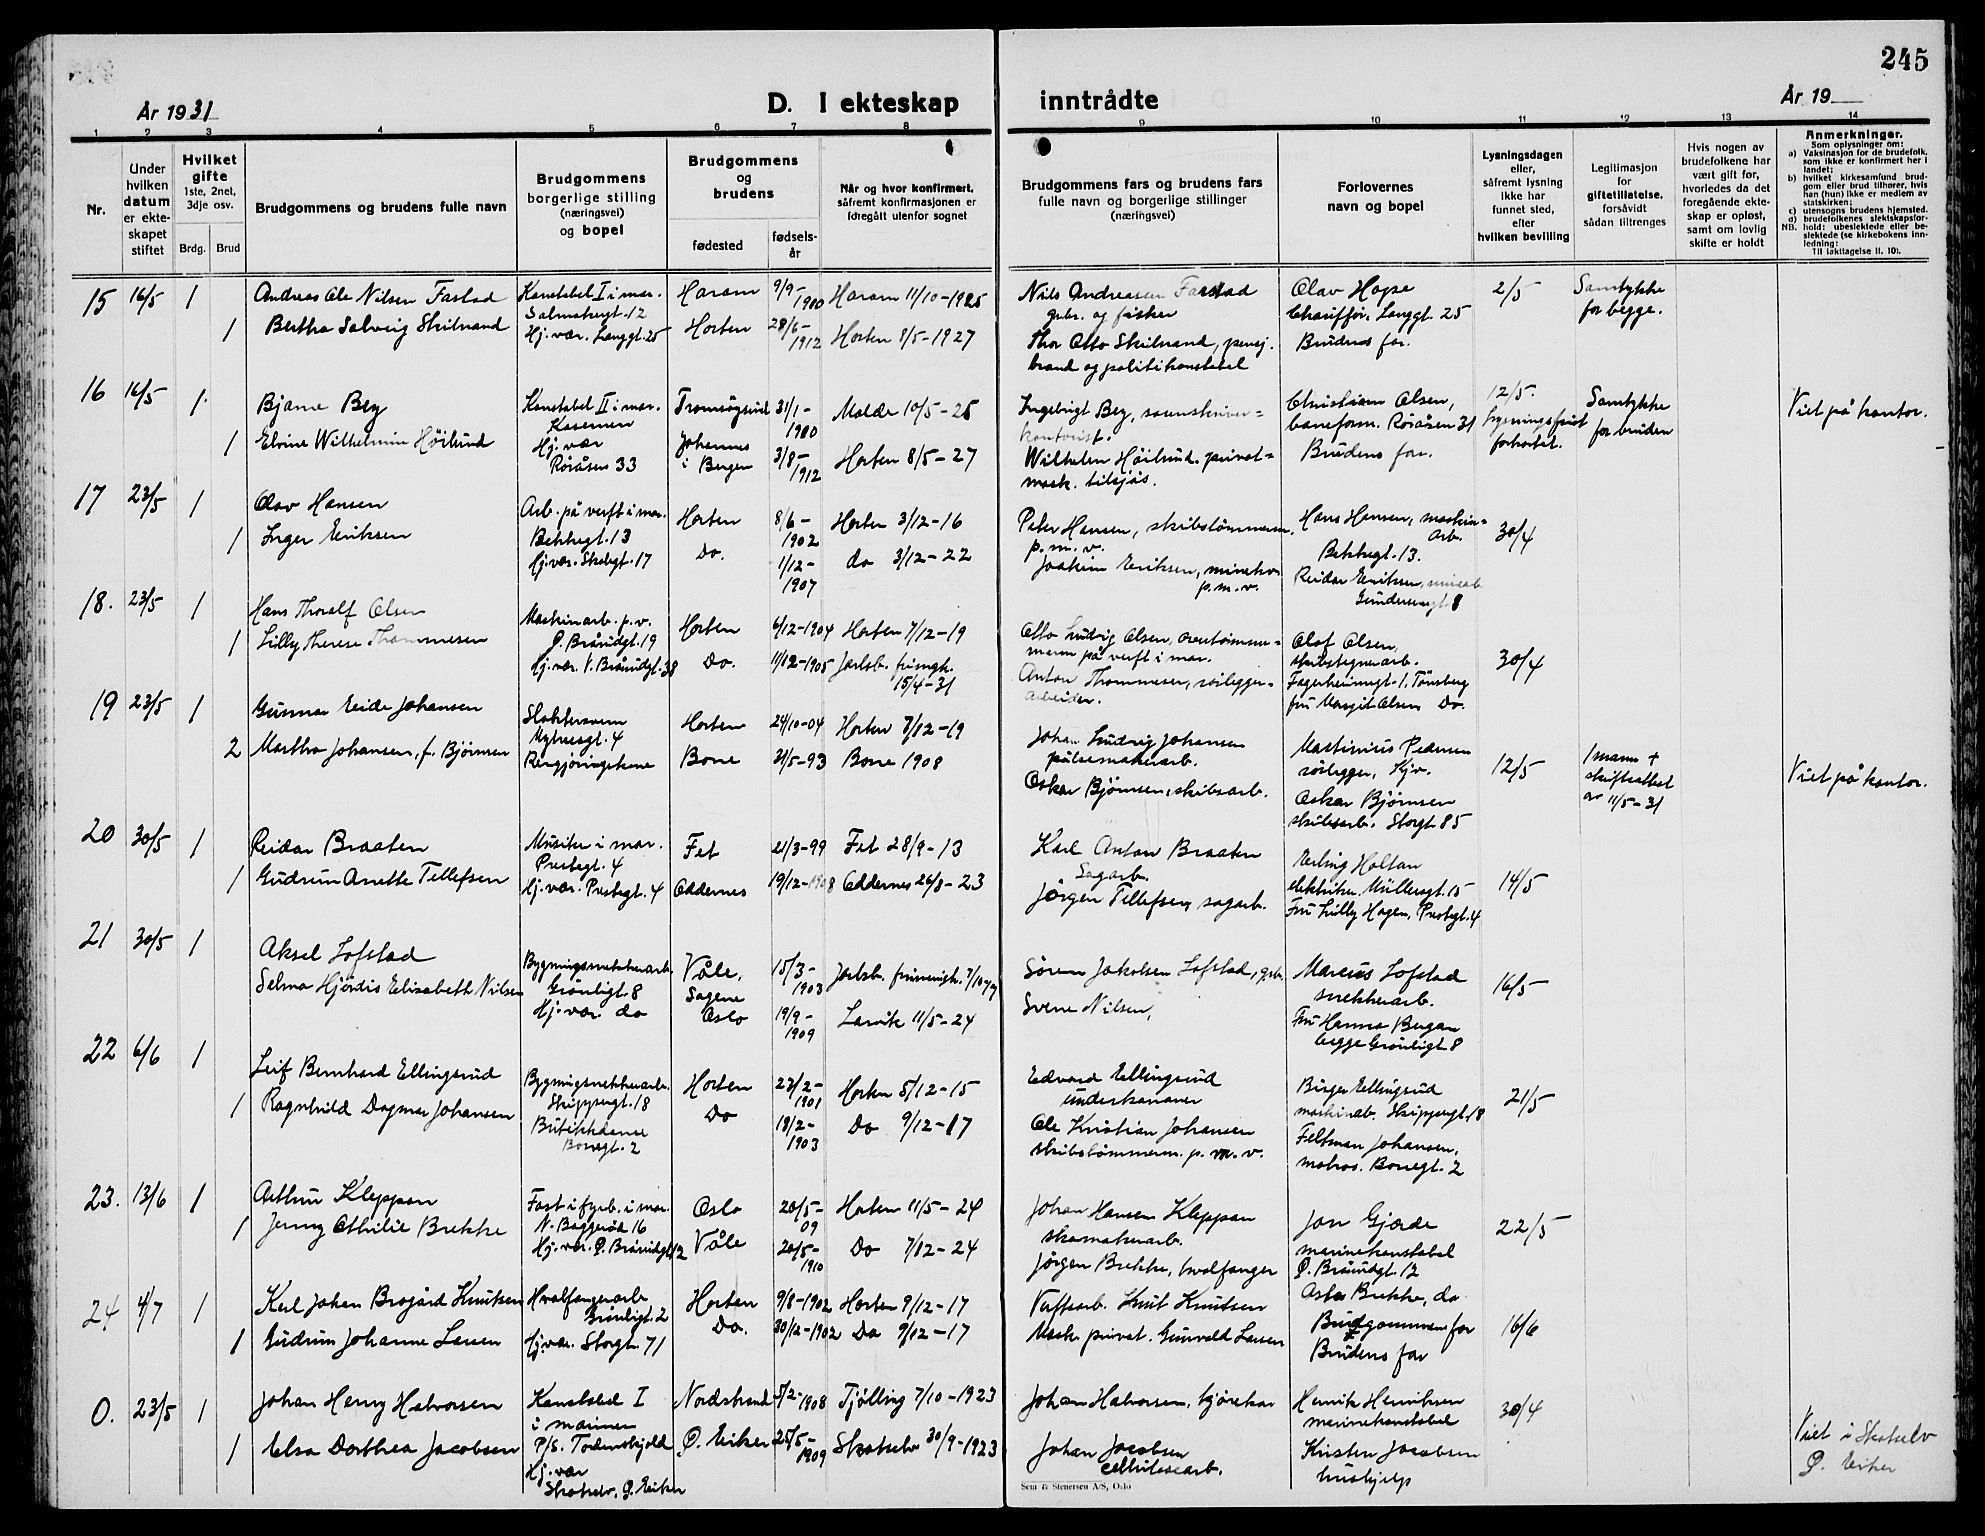 245
År 1931
D. I ekteskap inntrådte
År 19
1 2 3 4 5 6 7 8 9 10 11 12 13 14
Nr.
Under hvilken datum er ekteskapet stiftet
Hvilket gifte 1ste, 2net, 3dje osv.
Brdg. Brud
Brudgommens og brudens fulle navn
Brudgommens borgerlige stilling (næringsvei) og bopel
Brudgommens og brudens
fødested
fødselsår
Når og hvor konfirmert, såfremt konfirmasjonen er foregått utenfor sognet
Brudgommens fars og brudens fars fulle navn og borgerlige stillinger (næringsvei)
Forlovernes navn og bopel
Lysningsdagen eller, såfremt lysning ikke har funnet sted, efter hvilken bevilling
Legitimasjon for giftetillatelse, forsåvidt sådan tiltrenges
Hvis nogen av brudefolkene har vært gift før, hvorledes da det foregående ekteskap er opløst, samt om lovlig skifte er holdt
Anmerkninger.
Som oplysninger om:
a) Vaksinasjon for de brudefolk, som ikke er konfirmert her i landet;
b) hvilket kirkesamfund brudgom eller brud tilhører, hvis han (hun) ikke er medlem av statskirken;
c) utensogns brudens hjemsted.
d) brudefolkenes slektskapsforhold: ubeslektede eller beslektede (se kirkebokens innledning:
NB. Til iakttagelse II. 10).
15 16/5 1 Andreas Ole Nilsen Fastad Konstabel I i mar. Haram 9/9-1900 Haram 11/10-1925 Nils Andreasen Fastad Olav Hopse 2/5 Samtykke
gbr. og fisker Chauffør, Langgt. 25 for begge.
1 Bertha Solveig Skilnand Hj. vær. Langgt. 25 Horten 28/6-1912 Horten 8/5-1927 Thor Otto Skilnand, pensj. Brudens far.
brand og politikonstabel
16 16/5 1 Bjarne Berg Konstabel II i mar. 31/1-1900 Molde 10/5-25 Ingebrigt Berg, Christian Olsen, 12/5. Samtykke Viet på kontor.
Kasernen kontorist. baneform. Røråsen 31 lysningsfrist for bruden
1 Elvine Wilhelmine Höilund Hj. vær Johannes 3/8-1912 Horten 8/5-27 Wilhelm Höilund. privat= Brudens far. forkortet.
Røråsen 33 i Bergen mask. tilsjøs.
17 23/5 1 Olav Hansen Arb. på verft i mar. Horten 8/6-1902 Horten 3/12-16 Peter Hansen, skibstömmerm. Hans Hansen, maskin= 30/4
Bekkegt. 13 p. m. v. arb. Bekkegt. 13.
1 Inger Eriksen Hj. vær. 17 Do. 1/12-1907 do 3/12-22 Joakim Eriksen, Reidar Eriksen,
p. m. v. Gundersensgt. 8
18. 23/5 1 Hans Thoralf Olsen Maskinarb. p. v. Horten 6/12-1904 Horten 7/12-19 Otto Ludvig Olsen, Olaf Olsen, 30/4
Ø. Bråndgt. 19 på verft i mar. skibstegnerarb.
1 Lilly Therese Thommesen Hj. vær. V. Bråndgt. 38 Do. 11/12-1905 Jarlsb. frimgh. Anton Thommesen, rørlegger= Fagerheimsgt. 1, Tönsberg
15/4-31 arbeider. fru Margit Olsen Do.
19 23/5 1 Gunnar Eide Johansen Slaktersvenn Horten 24/10-04 Horten 7/12-19 Johan Ludvig Johansen Martinius Pedersen 12/5 1 mann + Viet på kontor.
gt. 4 pölsemakerarb. rørlegger, skifteattest
2 Martha Johansen, f. Bjørnsen Rengjöringskone Borre 31/5-93 Borre 1908 Oskar Bjørnsen, skibsarb. Oskar Bjørnsen av 11/5-31
skibsarb. Storgt. 85
20 30/5 1 Reidar Braaten Musiker i mar. Fet 21/3-99 Fet 28/9-13 Karl Anton Braaten Erling Holtan 14/5
Prestegt. 4 Sagarb. elektriker. Müllersgt. 15
1 Gudrun Anette Tellefsen Hj. vær. Prestegt. 4 Oddernes 19/12-1908 Oddernes 26/8-23 Jörgen Tellefsen, sagarb. Fru Lilly Hagen, Prestegt. 4
21 30/5 1 Aksel Lofstad Bygningssnekkerarb. Våle. 15/3-1903 Jarlsb. frimenigh. Sören Jakobsen Lofstad, gbr. Marcus Lofstad 16/5
Grönligt. 8 snekkerarb.
Selma Hjördis Elisabeth Nilsen Hj. vær. do Sagene Oslo 19/9-1909 Larvik 11/5-24 Svene Nilsen, Fru Hanna Bergan
begge Grönligt. 8
22 6/6 1 Leif Bernhard Ellingsrud Bygningssnekkerarb. Horten 23/2-1901 Horten 5/12-15 Edvard Ellingsrud Birger Ellingsrud 21/5
Skippergt. 18 underkanoner maskinarb. Skippergt. 18
1 Ragnhild Dagmar Johansen Butikkdame Do 18/2-1903 Do 9/12-17 Ole Kristian Johansen Feltman Johansen,
Borregt. 2 skibstömmerm. p. m. v. matros. Borregt. 2
23. 13/6 1 Arthur Kleppan Fast i fyrb. i mar. Oslo 20/5-09 Horten 11/5-24 Johan Hansen Kleppan Jon Gjerde 22/5
N. Baggeröd 16 skomakerarb. marinekonstabel
1 Jenny Othilie Brekke Hj. vær. Ø. Bråndgt. 12 Våle 20/5-1910 Do 7/12-24 Jörgen Brekke, hvalfanger Ø. Bråndgt. 12
Asta Brekke, do
24 4/7 1 Karl Johan Brogård Knutsen Hvalfangerarb. Horten 9/8-1902 Horten 9/12-17 Verftsarb. Knut Knutsen Brudgommens far 16/6
Grönligt. 2
1 Gudrun Johanne Larsen Hj. vær. Storgt. 71 Do. 30/12-1902 Do 9/12-17 Mask. privat. Gunvald Larsen Brudens far
0. 23/5 1 Johan Henry Halvorsen Konstabel I Nordstrand 5/2-1908 Tjölling 7/10-1923 Johan Halvorsen, kjörekar Henrik Henriksen 30/4
i marinen marinekonstabel
1 Elsa Dorthea Jacobsen P/S. Tordenskjold Ø. Eiker 25/5-1909 Skotselv 30/9-1923 Johan Jacobsen Kristen Jacobsen Viet i Skotselv
Hj. vær cellulosearb. hushjelp Ø. Eiker
Skotselv, Ø. Eiker
Sem & Stenersen A/S, Oslo